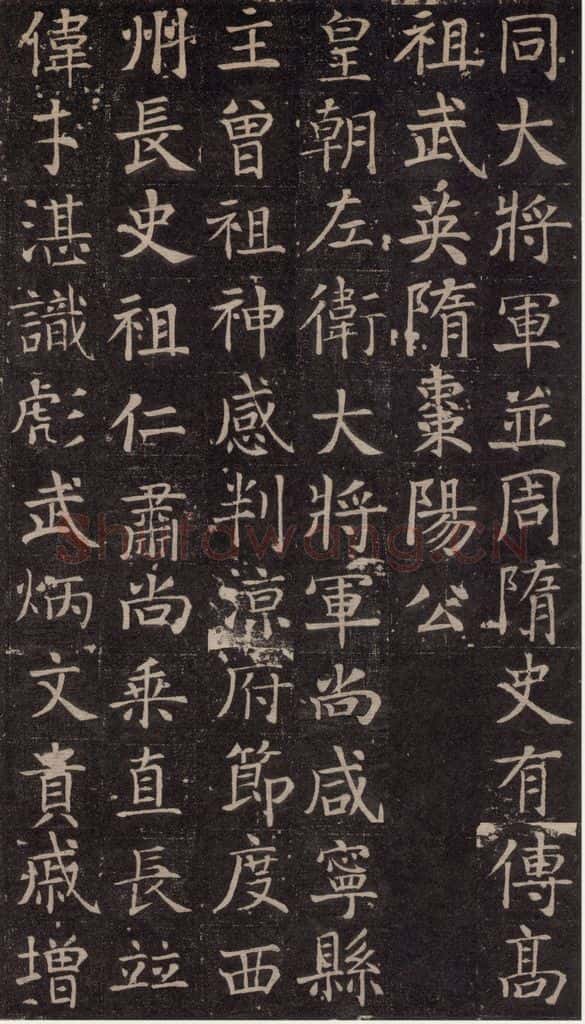 同大將軍並周隋史有傳髙
祖武英隋棗陽公
皇朝左衛大將軍尚咸寧縣
主曾祖神感判涼府節度西
州長史祖仁肅尚乘直長並
偉才湛識彪武炳文貴戚增
Shufawang.CN